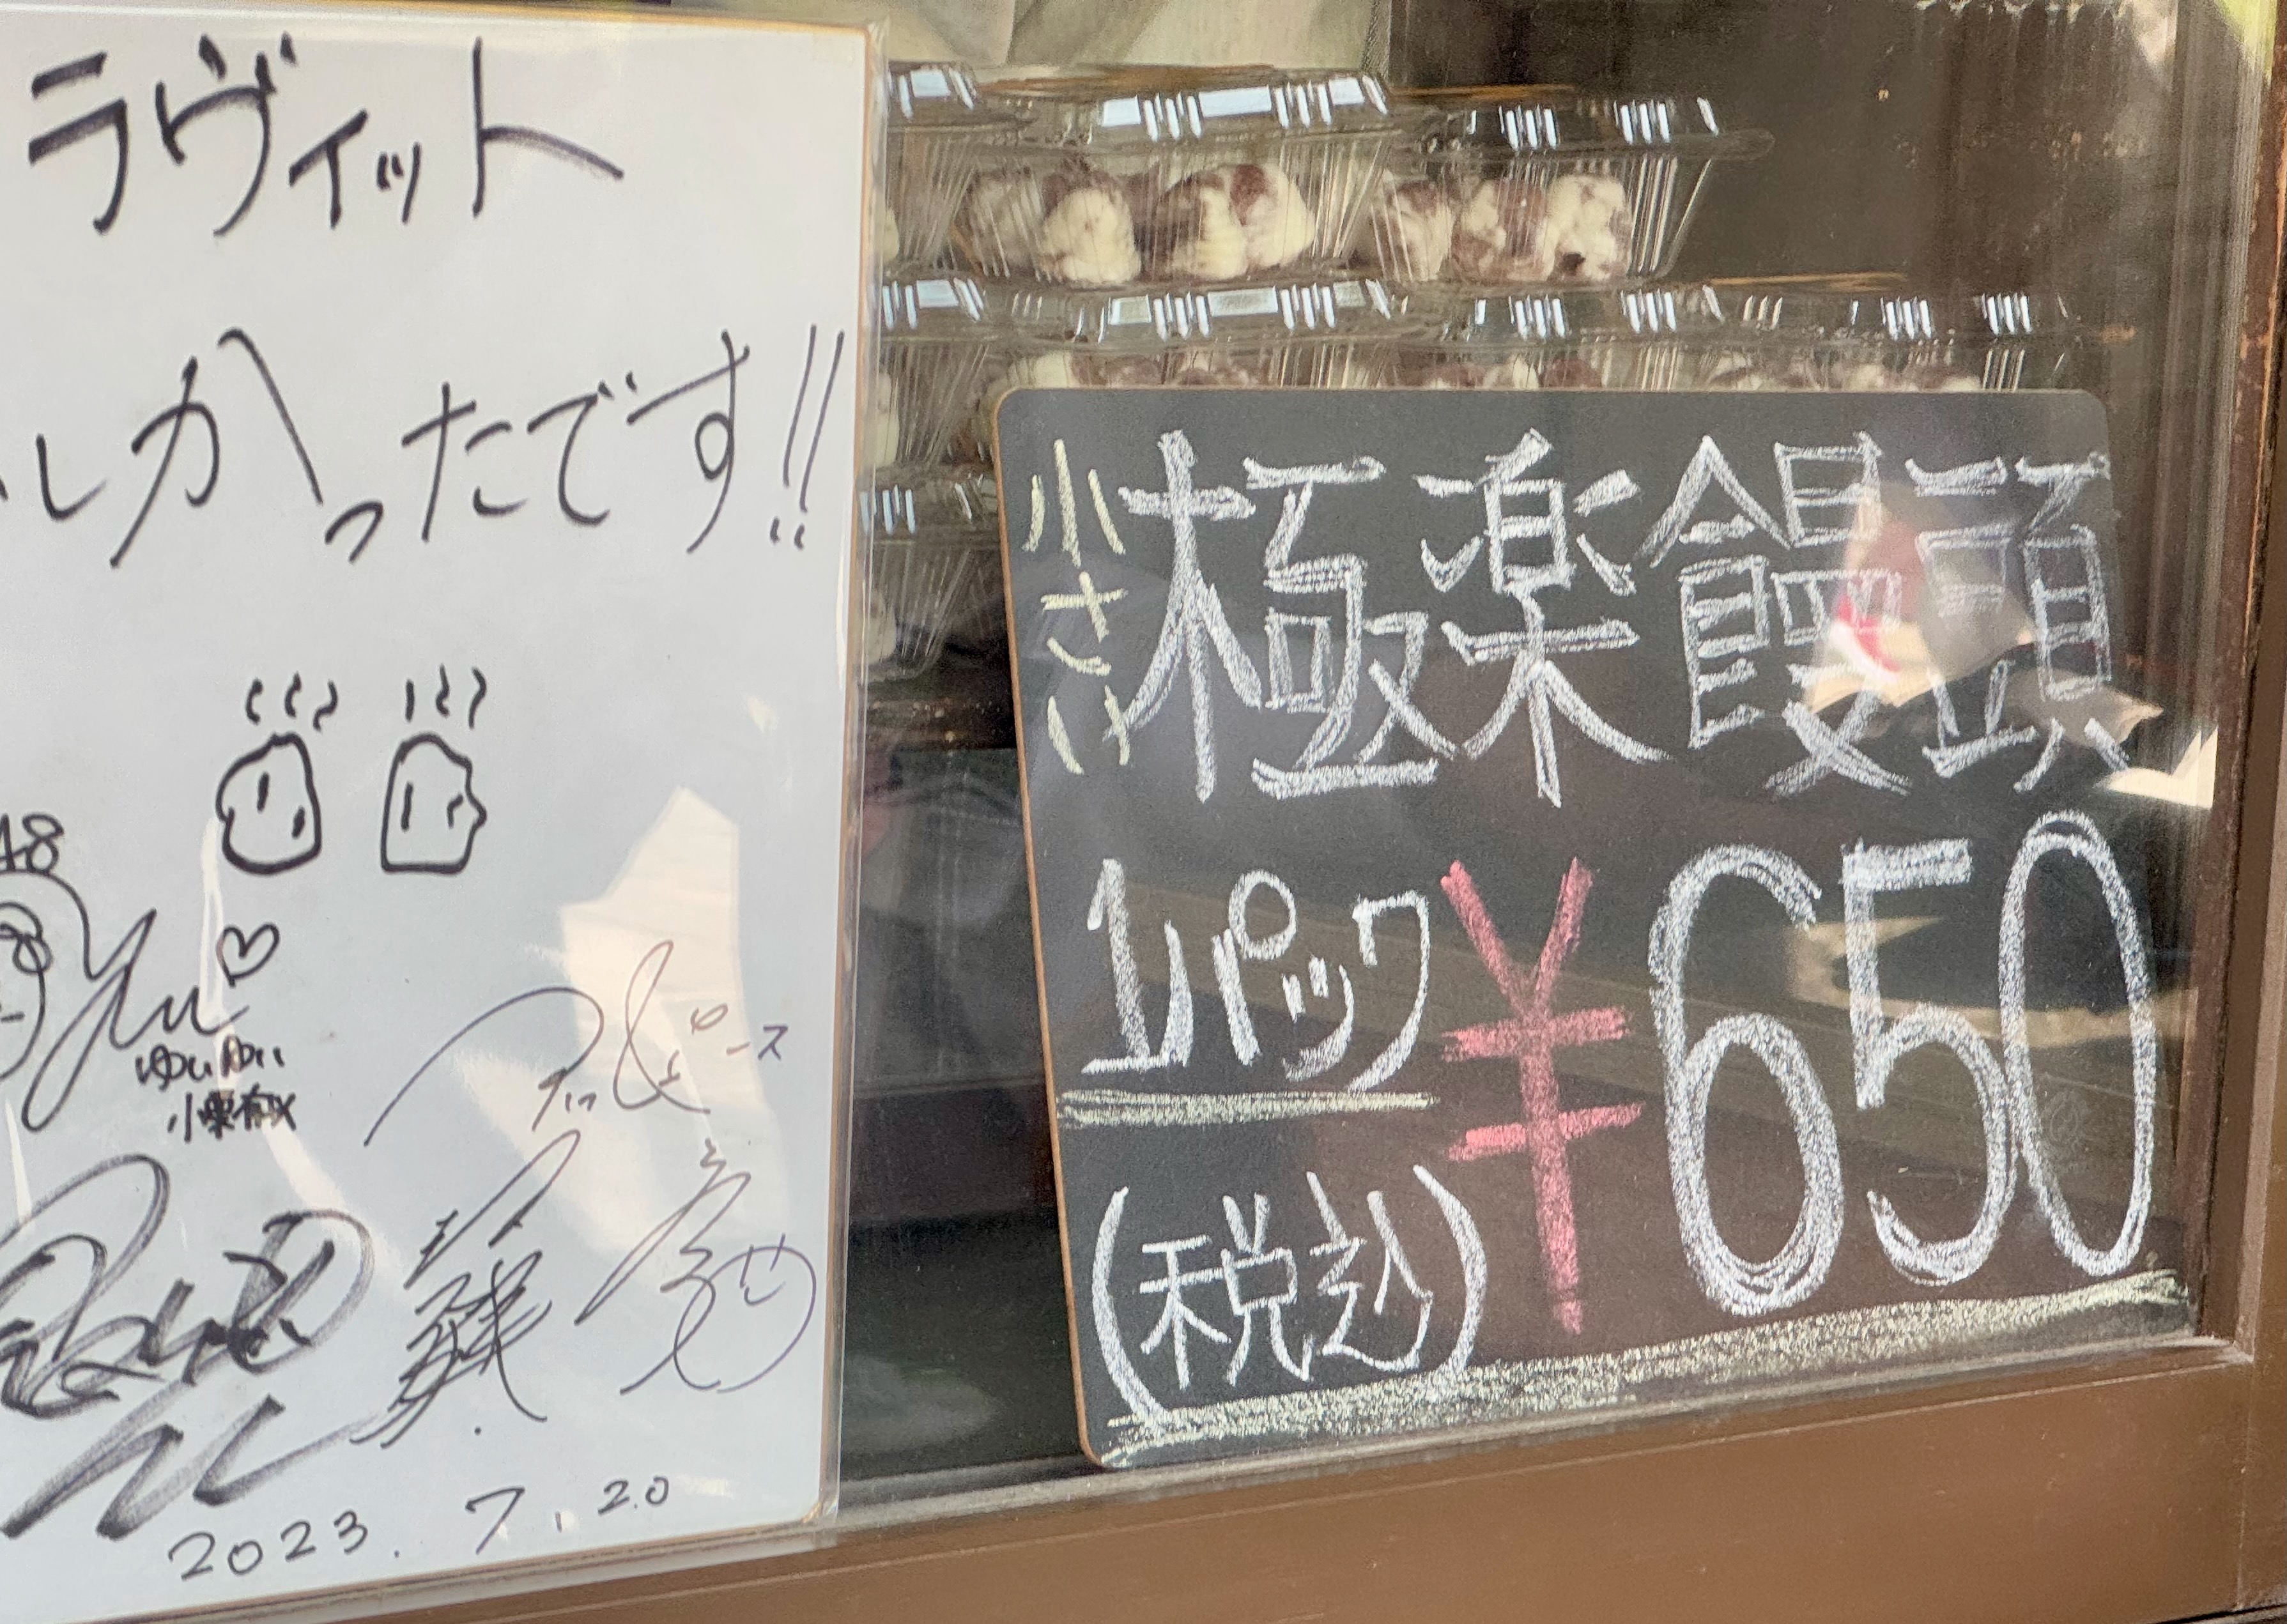 ラヴィット
しかったです!!
48
ゆいゆい
小栗有以
ピース
2023.7.20
小さけ
極楽饅頭
1パック ¥650
(税込)